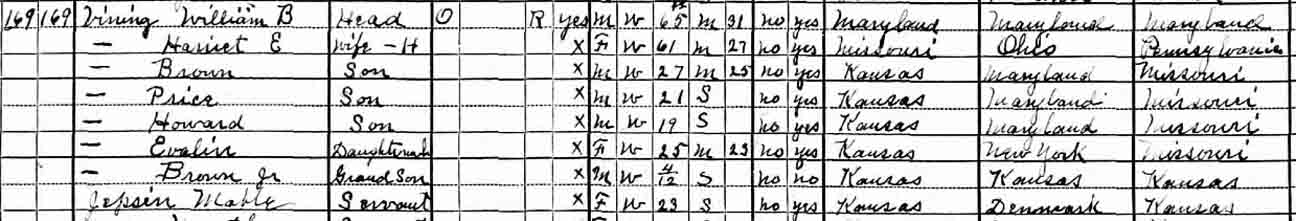 169 169 Vining William B Head O R yes M W 65 M 31 no yes Maryland Maryland Maryland
— Harriet E Wife-H X F W 61 M 27 no yes Missouri Ohio Pennsylvania
— Brown Son X M W 27 M 25 no yes Kansas Maryland Missouri
— Price Son X M W 21 S no yes Kansas Maryland Missouri
— Howard Son X M W 19 S no yes Kansas Maryland Missouri
— Evalin X F W 25 M 23 no yes Kansas New York Missouri
— Brown Jr Grand Son X M W 4/12 S no no Kansas Kansas Kansas
Jepsen Mable Servant X F W 23 S no yes Kansas Denmark Kansas